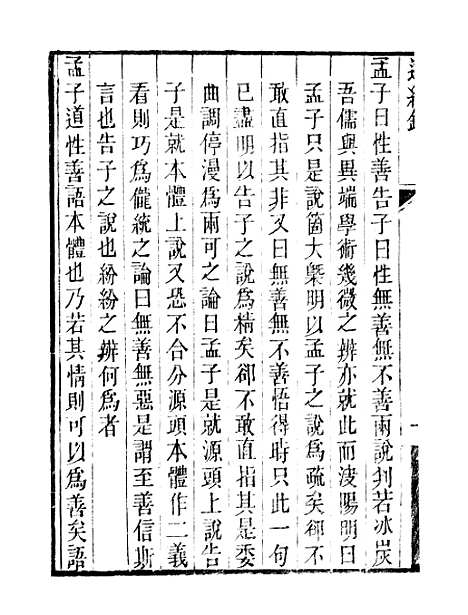 孟子曰性善告子曰性無善無不善兩說判若冰炭
吾儒與異端學術幾微之辨亦就此而淩陽明曰
孟子只是說箇大槩明以孟子之說為疏矣卻不
敢直指其非又曰無善無不善悟得時只此一句
已盡明以告子之說為精矣卻不敢直指其是委
曲調停漫為兩可之論曰孟子是就源頭上說告
子是就本體上說又恐不合分源頭本體作二義
看則巧為儱統之論曰無善無惡是謂至善信斯
言也告子之說也紛紛之辨何為者
孟子道性善語本體也乃若其情則可以為善矣語